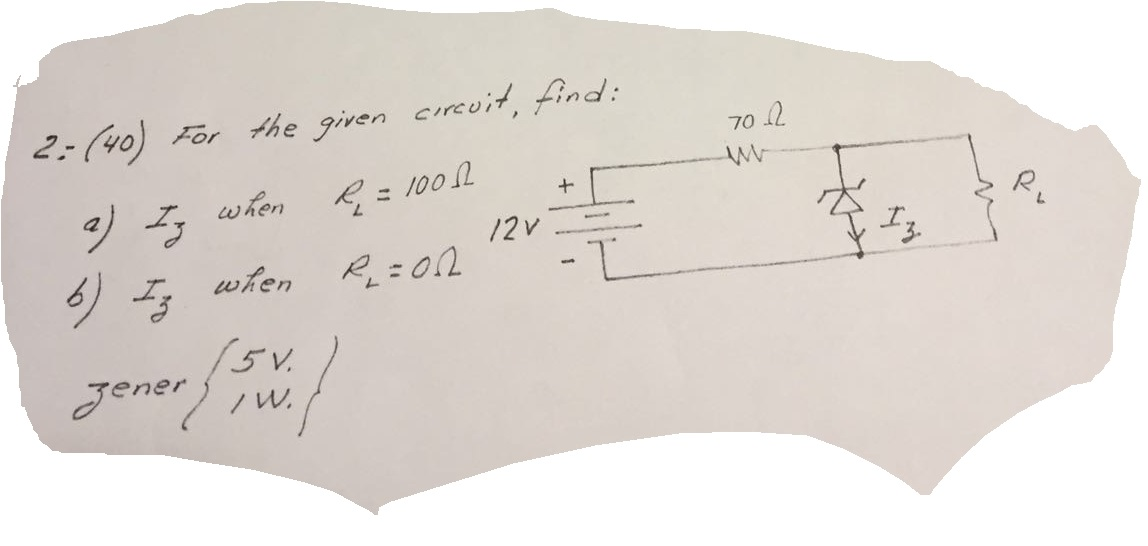 2.- (40) For the given circuit, find:
a) Iz when RL = 100 Ω
b) Iz when RL = 0Ω
zener { 5 V. 
1 W. }
70 Ω
+
12v
-
Iz
RL